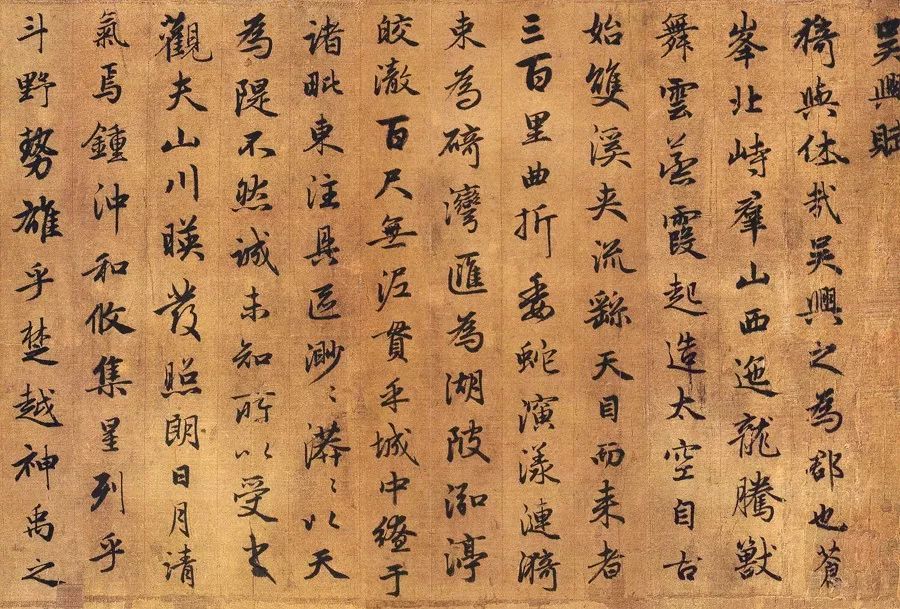 吳興賦
猗與休哉吳興之為郡也蒼
峯北峙羣山西迤龍騰獸
舞雲蒸霞起造太空自古
始雙溪夾流繇天目而来者
三百里曲折委蛇演漾漣漪
束為碕灣匯為湖陂泓渟
皎澈百尺無泥貫乎城中繚于
諸毗東注具區渺〻漭〻以天
為隄不然誠未知所以受之
觀夫山川暎發照朗日月清
氣焉鍾沖和攸集星列乎
斗野勢雄乎楚越神禹之